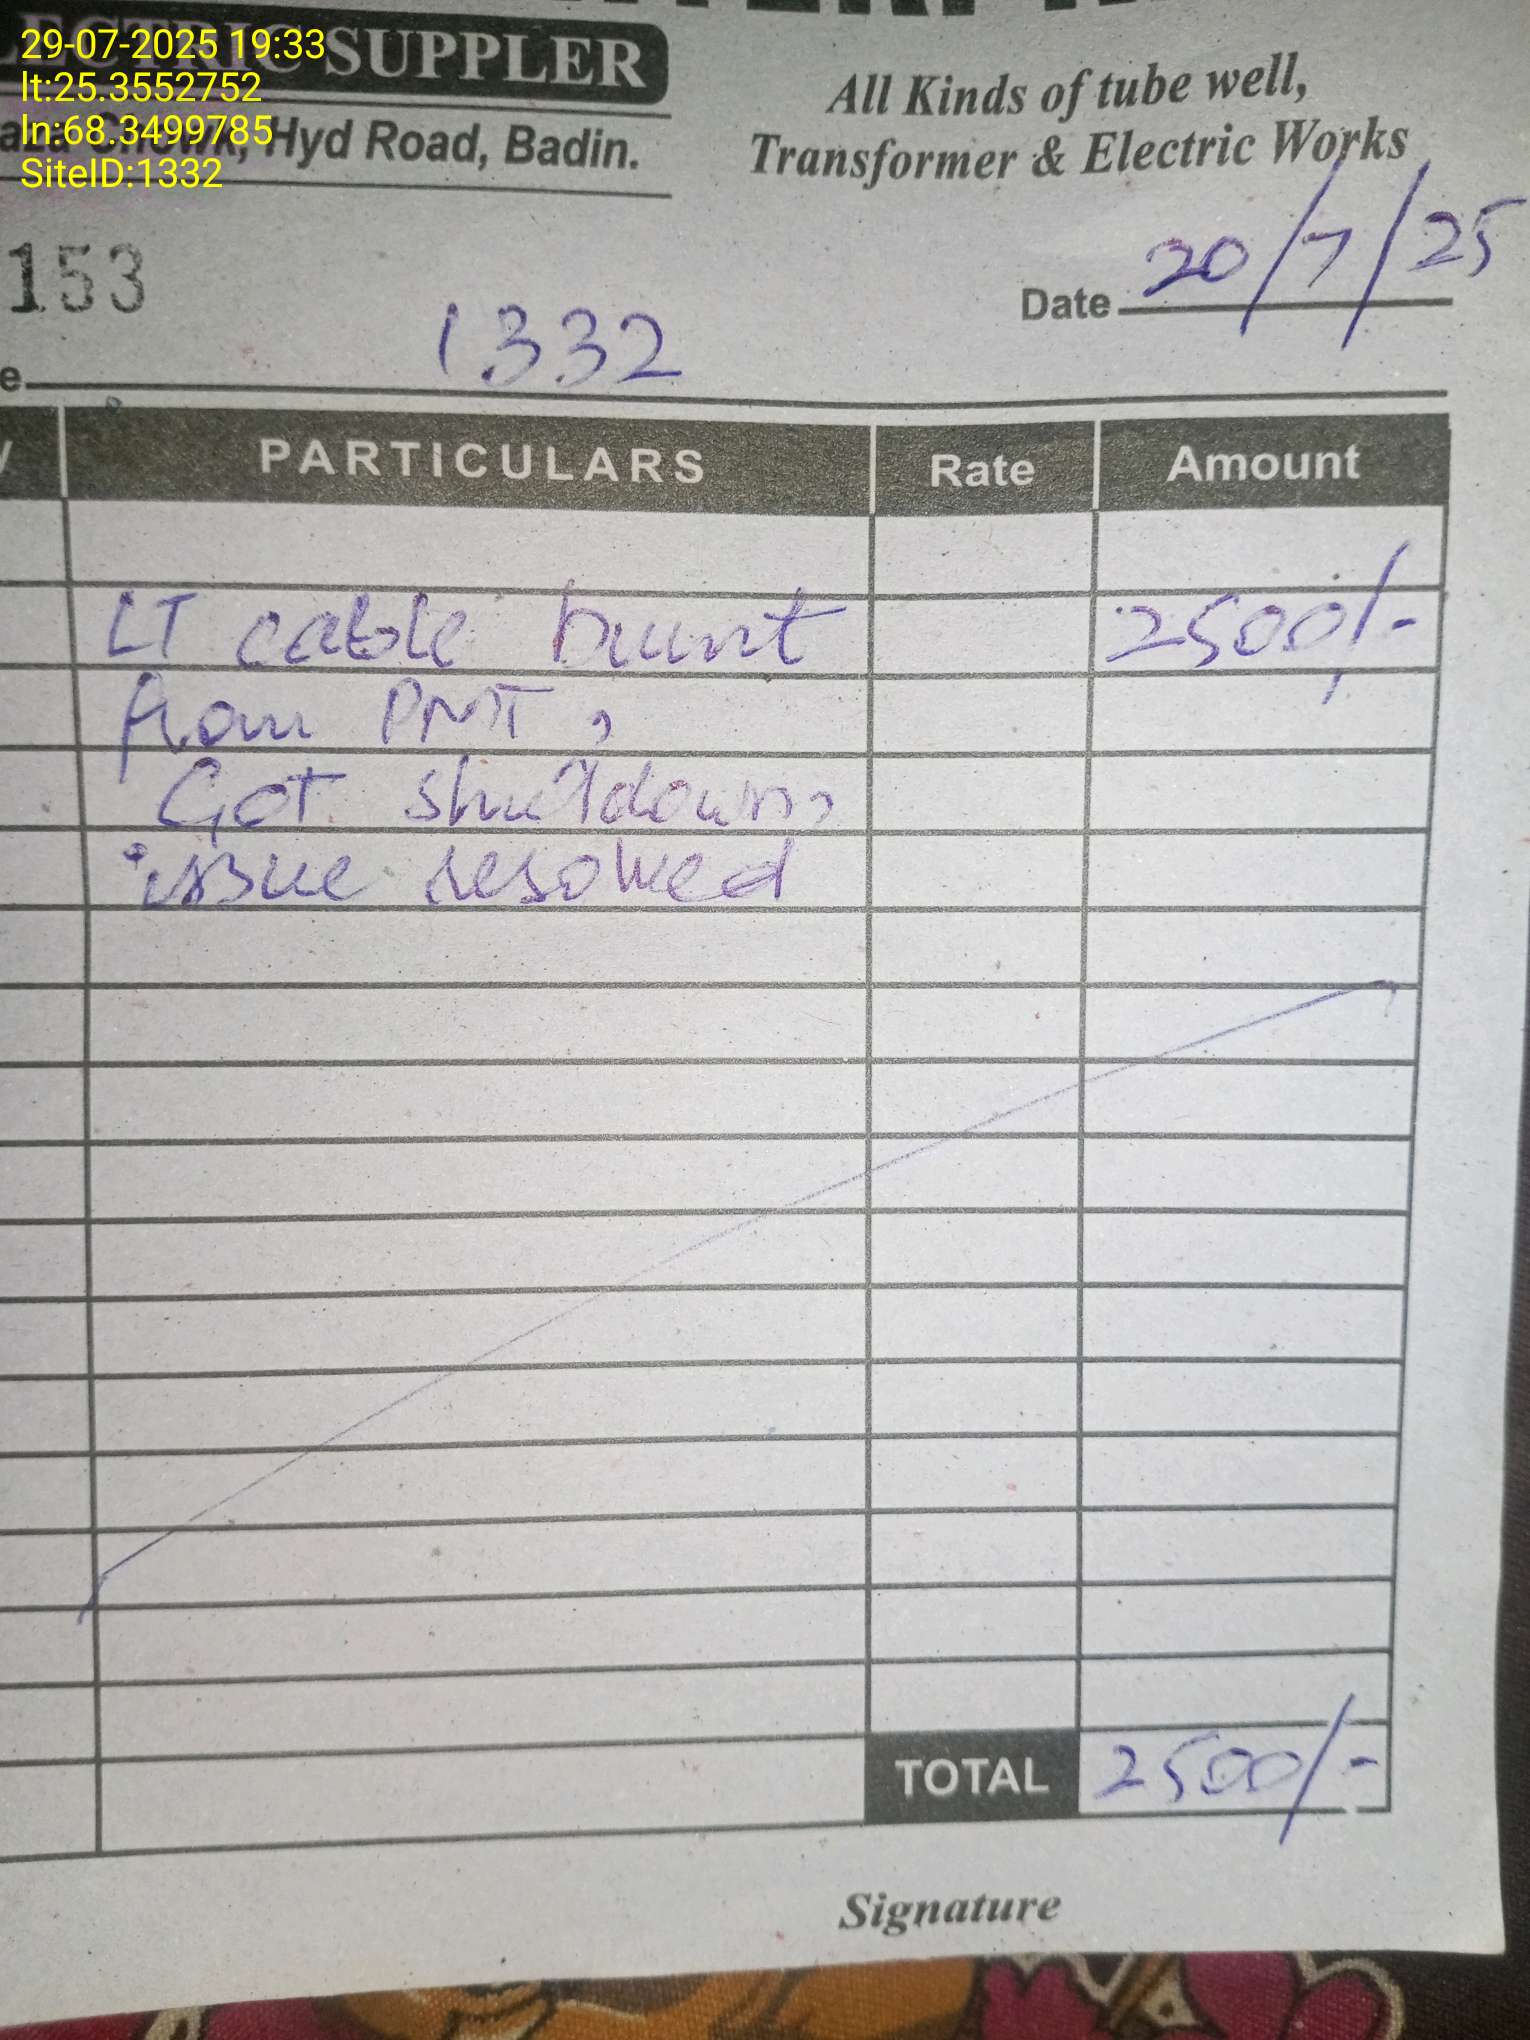 29-07-2025 19:33
lt:25.3552752
ln:68.3499785
SiteID:1332
ELECTRIC SUPPLER
Hyd Road, Badin.
All Kinds of tube well,
Transformer & Electric Works
153
Date 20/7/25
1332
PARTICULARS Rate Amount
LT cable burnt 2500/-
from PMT,
Got shutdown,
issue resolved
TOTAL 2500/-
Signature